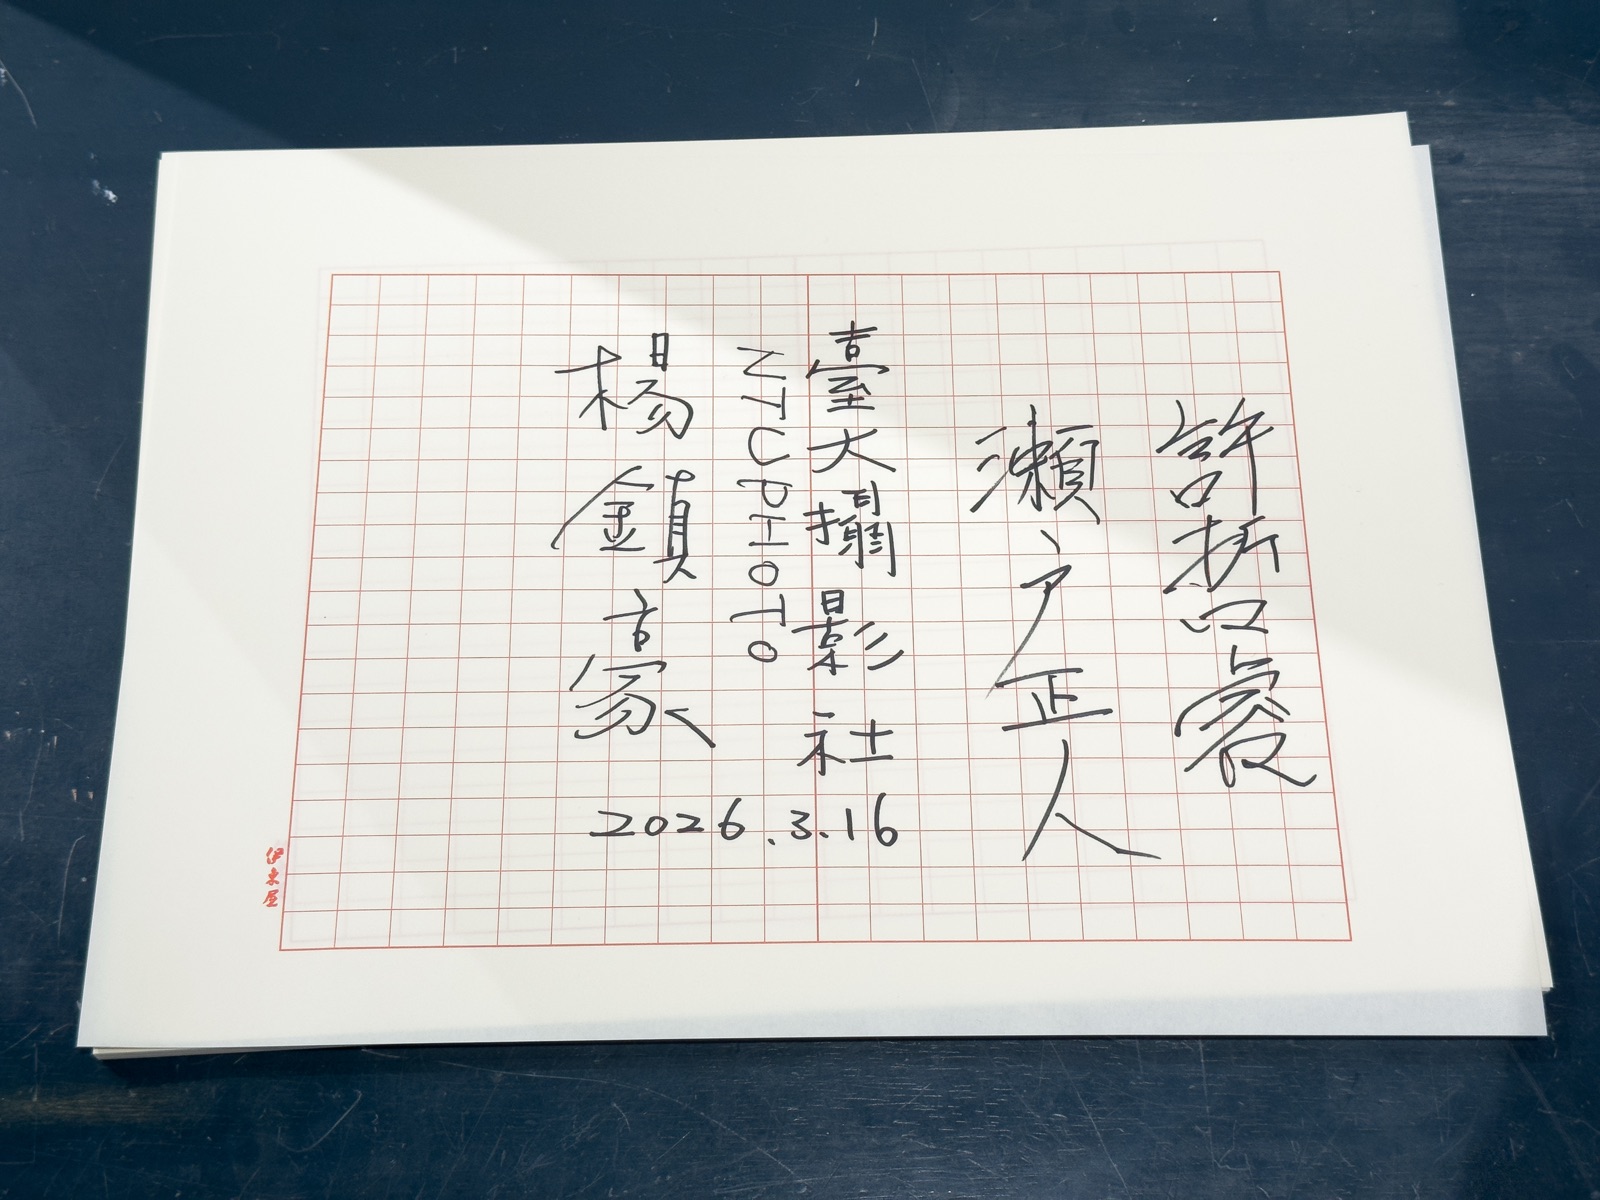 許哲愛
瀬戸正人
臺大攝影社
NTUPHOTO
楊鎮豪
2026.3.16
伊東屋